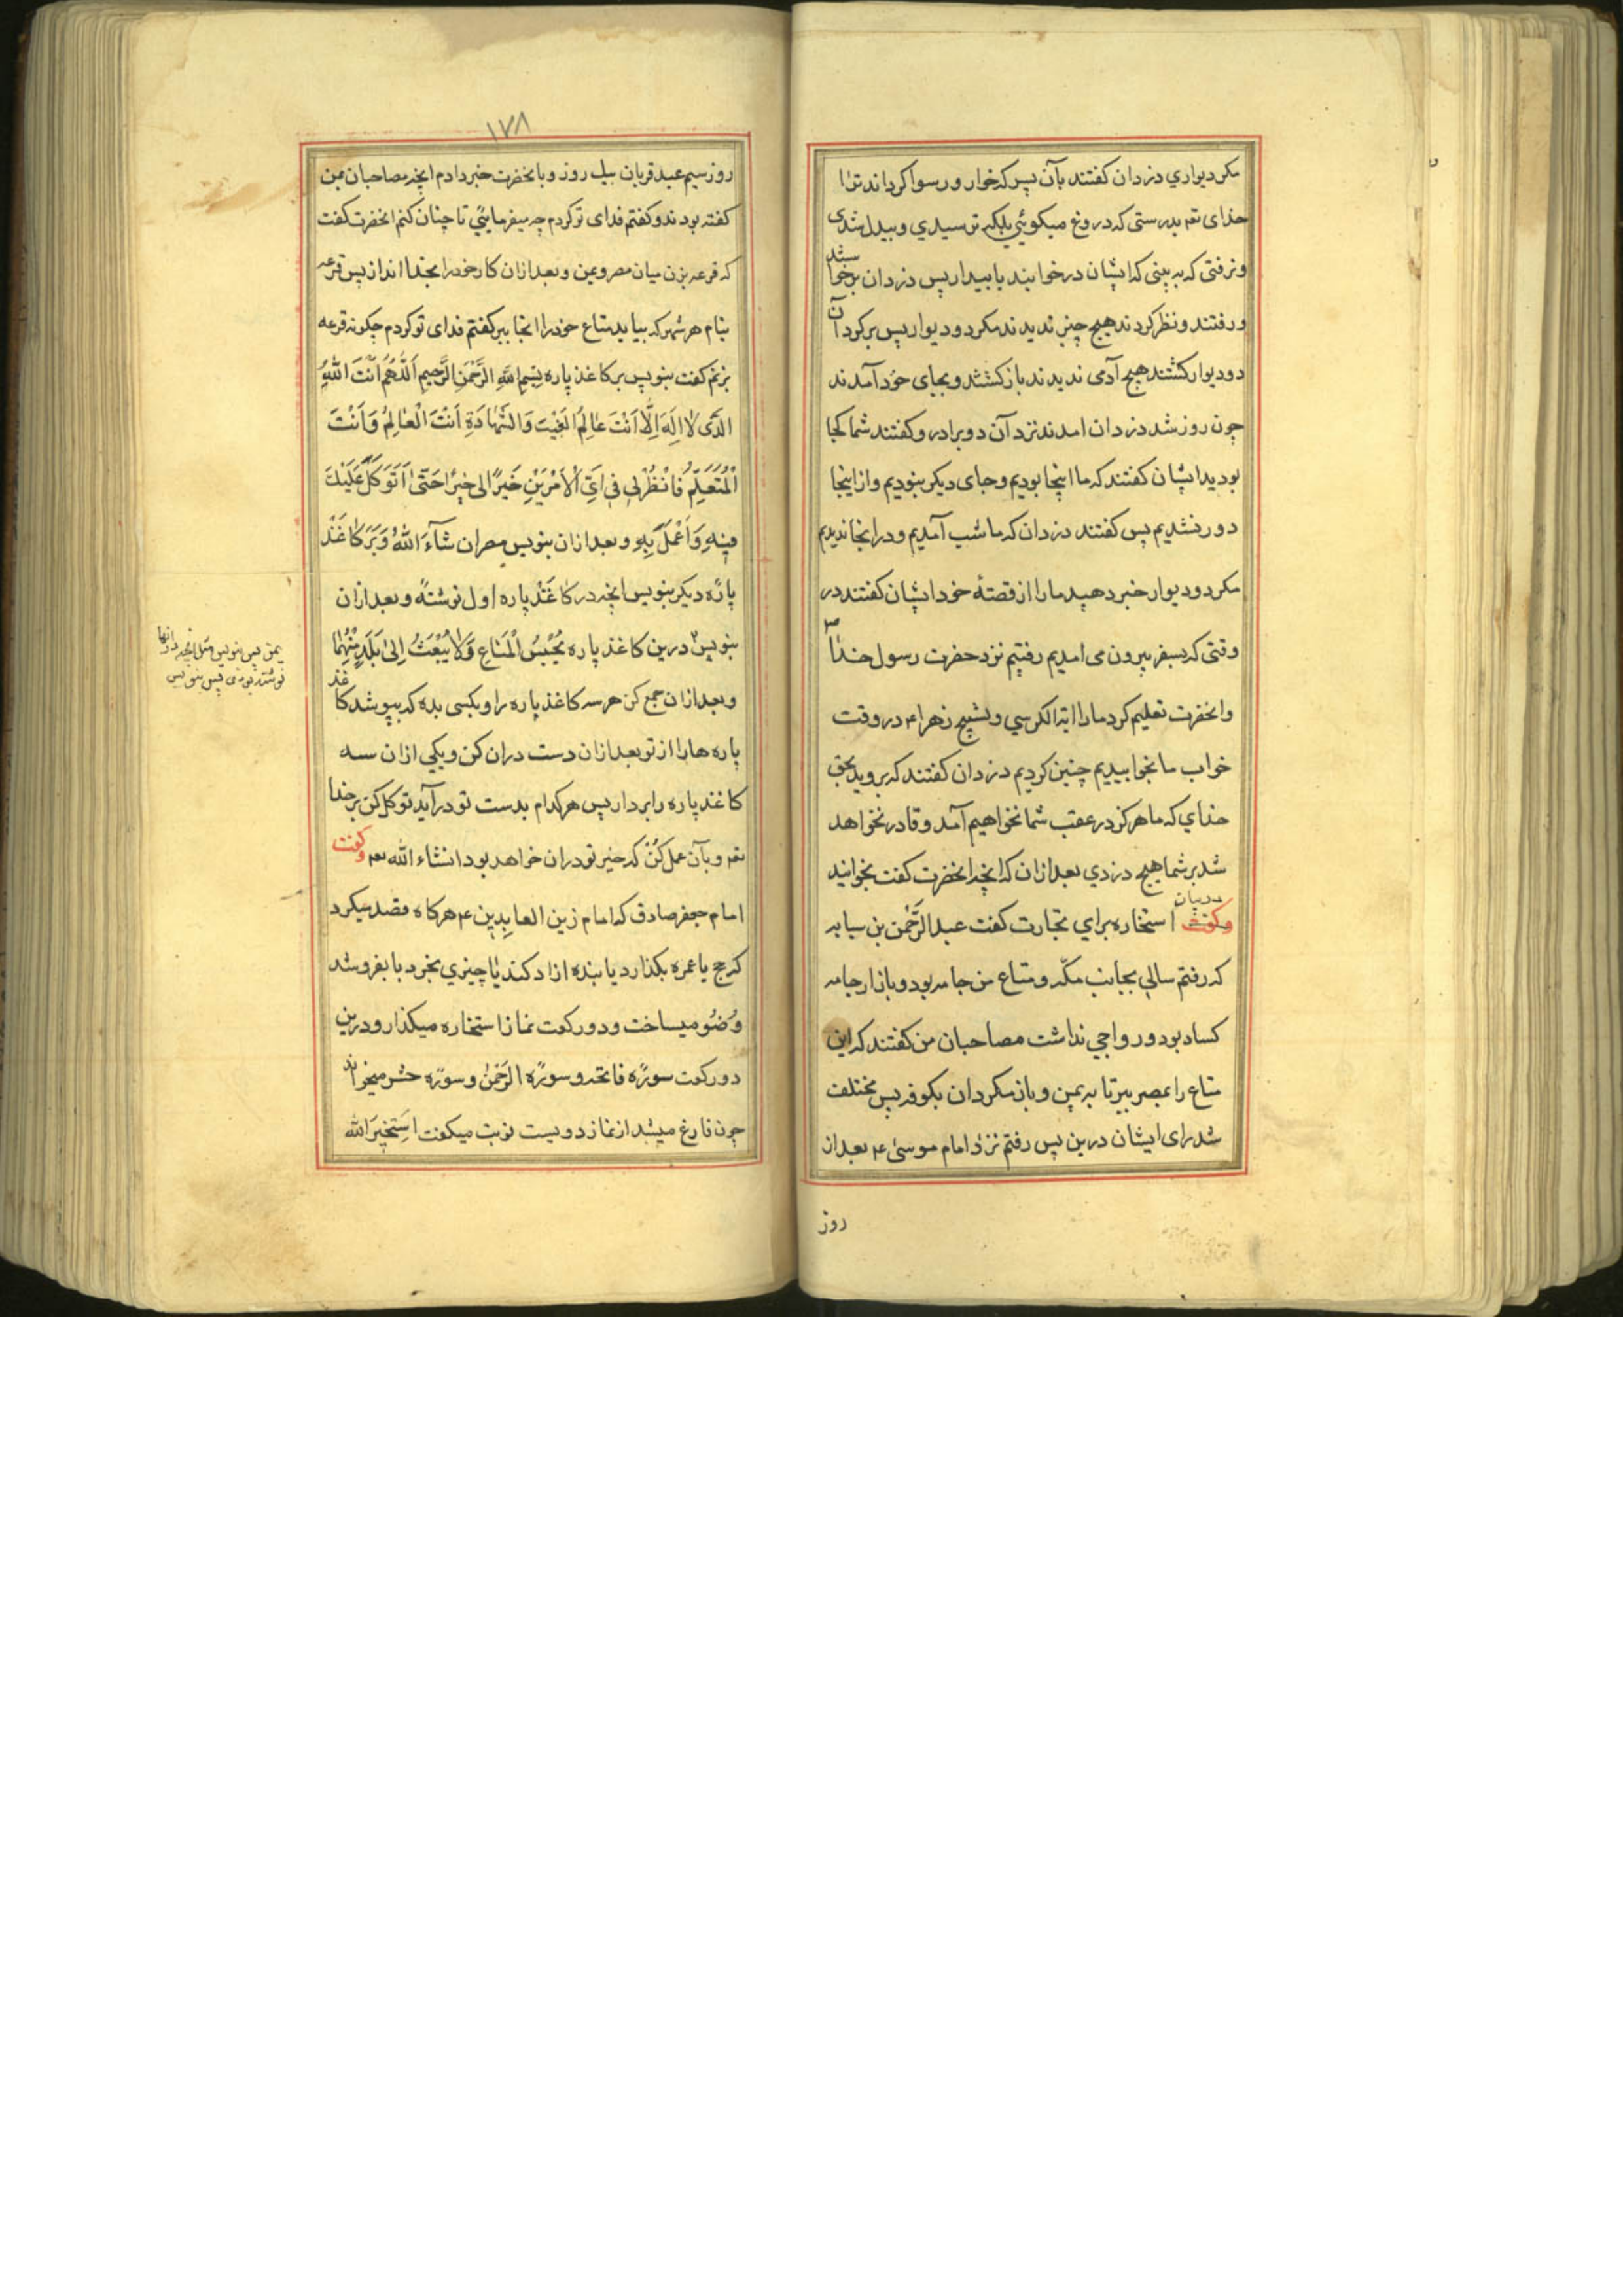 مکر دیواري دزدان کفتند بآن پس که خوار و رسوا کرداند ترا
خدای تعم بدرستی که دروغ میکوئي بلکه ترسیدي و بیدل شدی
و نرفتی که به بینی که ایشان در خوابند یا بیدار پس دزدان برخواستند
و رفتند و نظر کردند هیچ چیز ندیدند مکر دو دیوار پس برکرد آن
دو دیوار کشتند هیچ آدمی ندیدند باز کشتند و بجای خود آمدند
چون روز شد دزدان امدند نزد آن دو برادر و کفتند شما کجا
بودید ایشان کفتند که ما اینجا بودیم و جای دیکر نبودیم و از اینجا
دور نشدیم پس کفتند دزدان که ما شب آمدیم و در اینجا ندیدیم
مکر دو دیوار خبر دهید ما را از قصهٔ خود ایشان کفتند در
وقتی که بسفر بیرون می امدیم رفتیم نزد حضرت رسول خدا ص
و انحضرت تعلیم کرد ما را ایة الکرسي و تسبیح زهرا ع در وقت
خواب ما بخوابیدیم چنین کردیم دزدان کفتند که بروید بحق
خداي که ما هرکز در عقب شما نخواهیم آمد و قادر نخواهد
شد بر شما هیچ دزدي بعد از ان که انچه انحضرت کفت بخوانید
در بیان استخاره براي تجارت کفت عبد الرحمن بن سیابه
که رفتم سالي بجانب مکّه و متاع من جامه بود و بازار جامه
کساد بود و رواجي نداشت مصاحبان من کفتند که این
متاع را بمصر ببر تا به یمن و باز مکردان بکوفه پس مختلف
شد رای ایشان درین پس رفتم نزد امام موسیٰ ع بعد از
روز
۱۷۸
روز سیم عید قربان بیک روز و بانحضرت خبر دادم انچه مصاحبان من
کفته بودند و کفتم فدای تو کردم چه میفرمایئي تا چنان کنم انحضرت کفت
که قرعه بزن میان مصر و یمن و بعد از ان کار خود را بخدا انداز پس قرعه
بنام هر شهر که بیاید متاع خود را انجا ببر کفتم فدای تو کردم چکونه قرعه
بزنم کفت بنویس بر کاغذ پاره بِسْمِ اللهِ الرَّحْمٰنِ الرَّحِیمِ اَللّٰهُمَّ اَنْتَ اللهُ
الَّذی لاٰ اِلٰهَ اِلَّا اَنْتَ عٰالِمُ الْغَیْبِ وَالشَّهٰادَةِ اَنْتَ الْعٰالِمُ وَاَنْتَ
الْمُتَعَلِّمُ فَانْظُرْ لي في اَيِّ الْاَمْرَیْنِ خَیْرًا لي خیرًا حَتّیٰ اَتَوَکَّلَ عَلَیْكَ
فیهِ وَاَعْمَلَ بِهِ و بعد از ان بنویس مصر ان شآءَ اللهُ وَ بَر کاغَذ
پارَه دیکر بنویس انچه در کاغَذ پاره اول نوشته و بعد از ان
بنویس درین کاغذ پاره یُحْبَسُ الْمَتاعُ وَلاٰ یُبْعَثُ اِلیٰ بَلَدٍ مِنْهُمٰا
و بعد از ان جمع کن هر سه کاغذ پاره را و بکسی بده که بپوشد کاغذ
پاره ها را از تو بعد از ان دست دران کن و یکي از ان سه
کاغذ پاره را بردار پس هر کدام بدست تو در آید توکل کن بر خدا
تعم و بآن عمل کُنْ که خیر تو دران خواهد بود انشاء الله تعم و کفت
امام جعفر صادق که امام زین العابدین ع هرکاه قصد میکرد
که حج یا عمره بکذارد یا بنده ازاد کند یا چیزي بخرد یا بفروشد
وُضُو میساخت و دو رکعت نماز استخاره میکذارد و درین
دو رکعت سورَه فاتحه و سورَه الرَّحْمٰن و سورَه حشر میخواند
چون فارغ میشد از نماز دویست نوبت میکفت اَستَخیرُ الله
یمن پس بنویس مثل انچه در انها
نوشته بودی پس بنویس